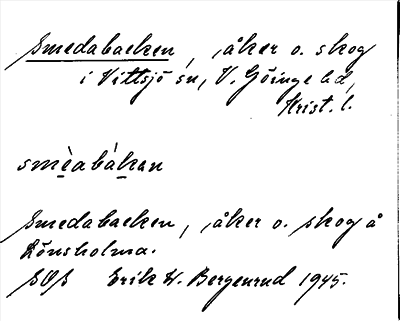 Smedabacken, åker o. skog
i Vittsjö sn, V. Göinge hd,
Krist. l.
smèabàkan
Smedabacken, åker o. skog å
Lönsholma.
SOS Erik W. Bergenrud 1945.